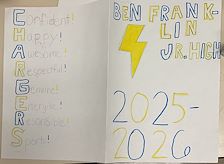 Confident!
Happy!
Awesome!
Respectful!
Genuine!
Energetic!
Responsible!
Sporti!
BEN FRANK-
LIN
JR. HIGH
2025-
2026